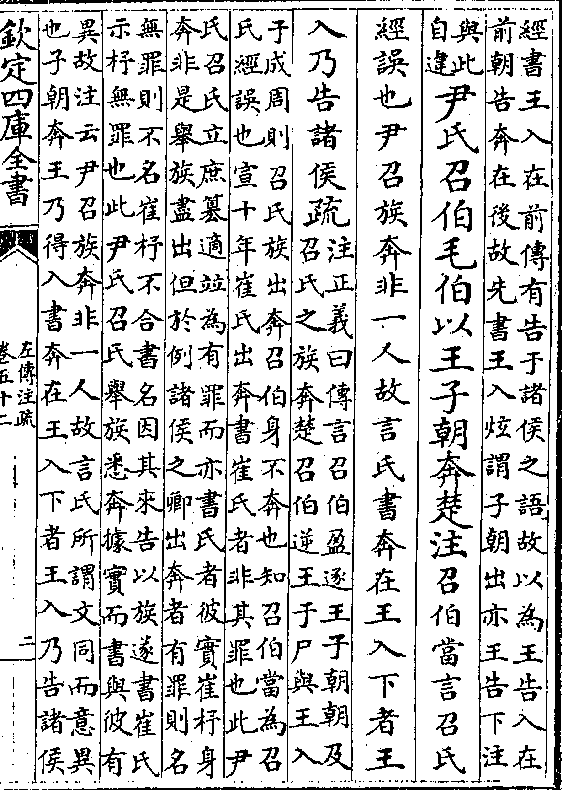 經書王入在前傳有告于諸侯之語故以為王告入在
前朝告奔在後故先書王入炫謂子朝出亦王告下注
與此
自違
尹氏召伯毛伯以王子朝奔楚注召伯當言召氏
經誤也尹召族奔非一人故言氏書奔在王入下者王
入乃告諸侯疏
注正義曰傳言召伯盈逐王子朝朝及
召氏之族奔楚召伯逆王于尸與王入
于成周則召氏族出奔召伯身不奔也知召伯當為召
氏經誤也宣十年崔氏出奔書崔氏者非其罪也此尹
氏召氏立庶篡適竝為有罪而亦書氏者彼實崔杼身
奔非是舉族盡出但於例諸侯之卿出奔者有罪則名
無罪則不名崔杼不合書名因其來告以族遂書崔氏
示杼無罪也此尹氏召氏舉族悉奔據實而書與彼有
異故注云尹召族奔非一人故言氏所謂文同而意異
也子朝奔王乃得入書奔在王入下者王入乃告諸侯
欽定四庫全書
左傳注疏
卷五十二
二